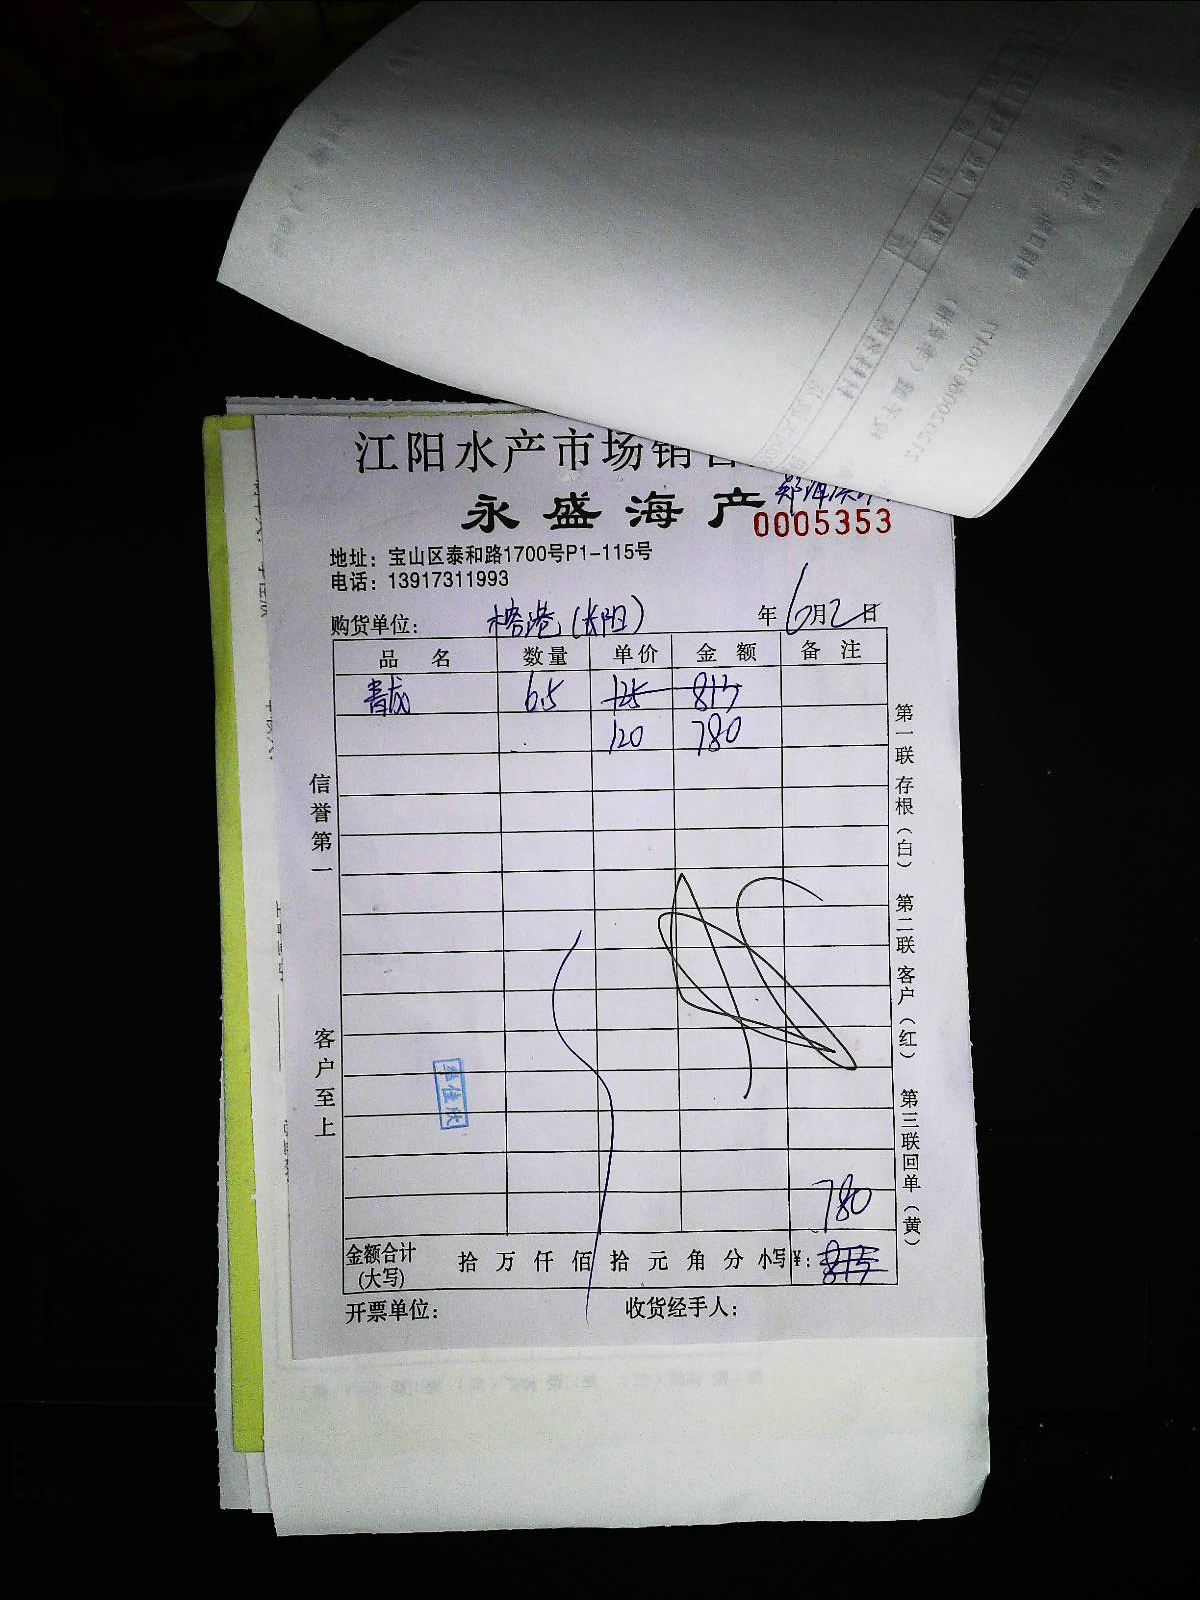 江阳水产市场销
永盛海产
0005353
地址：宝山区泰和路1700号P1-115号
电话：13917311993
购货单位： 榕港(长阳) 年6月2日
品名 数量 单价 金额 备注
6.5 125 813
120 780
信誉第一
客户至上
第一联存根（白） 第二联客户（红） 第三联回单（黄）
780
金额合计(大写) 拾 万 仟 佰 拾 元 角 分 小写¥: 813
开票单位： 收货经手人：